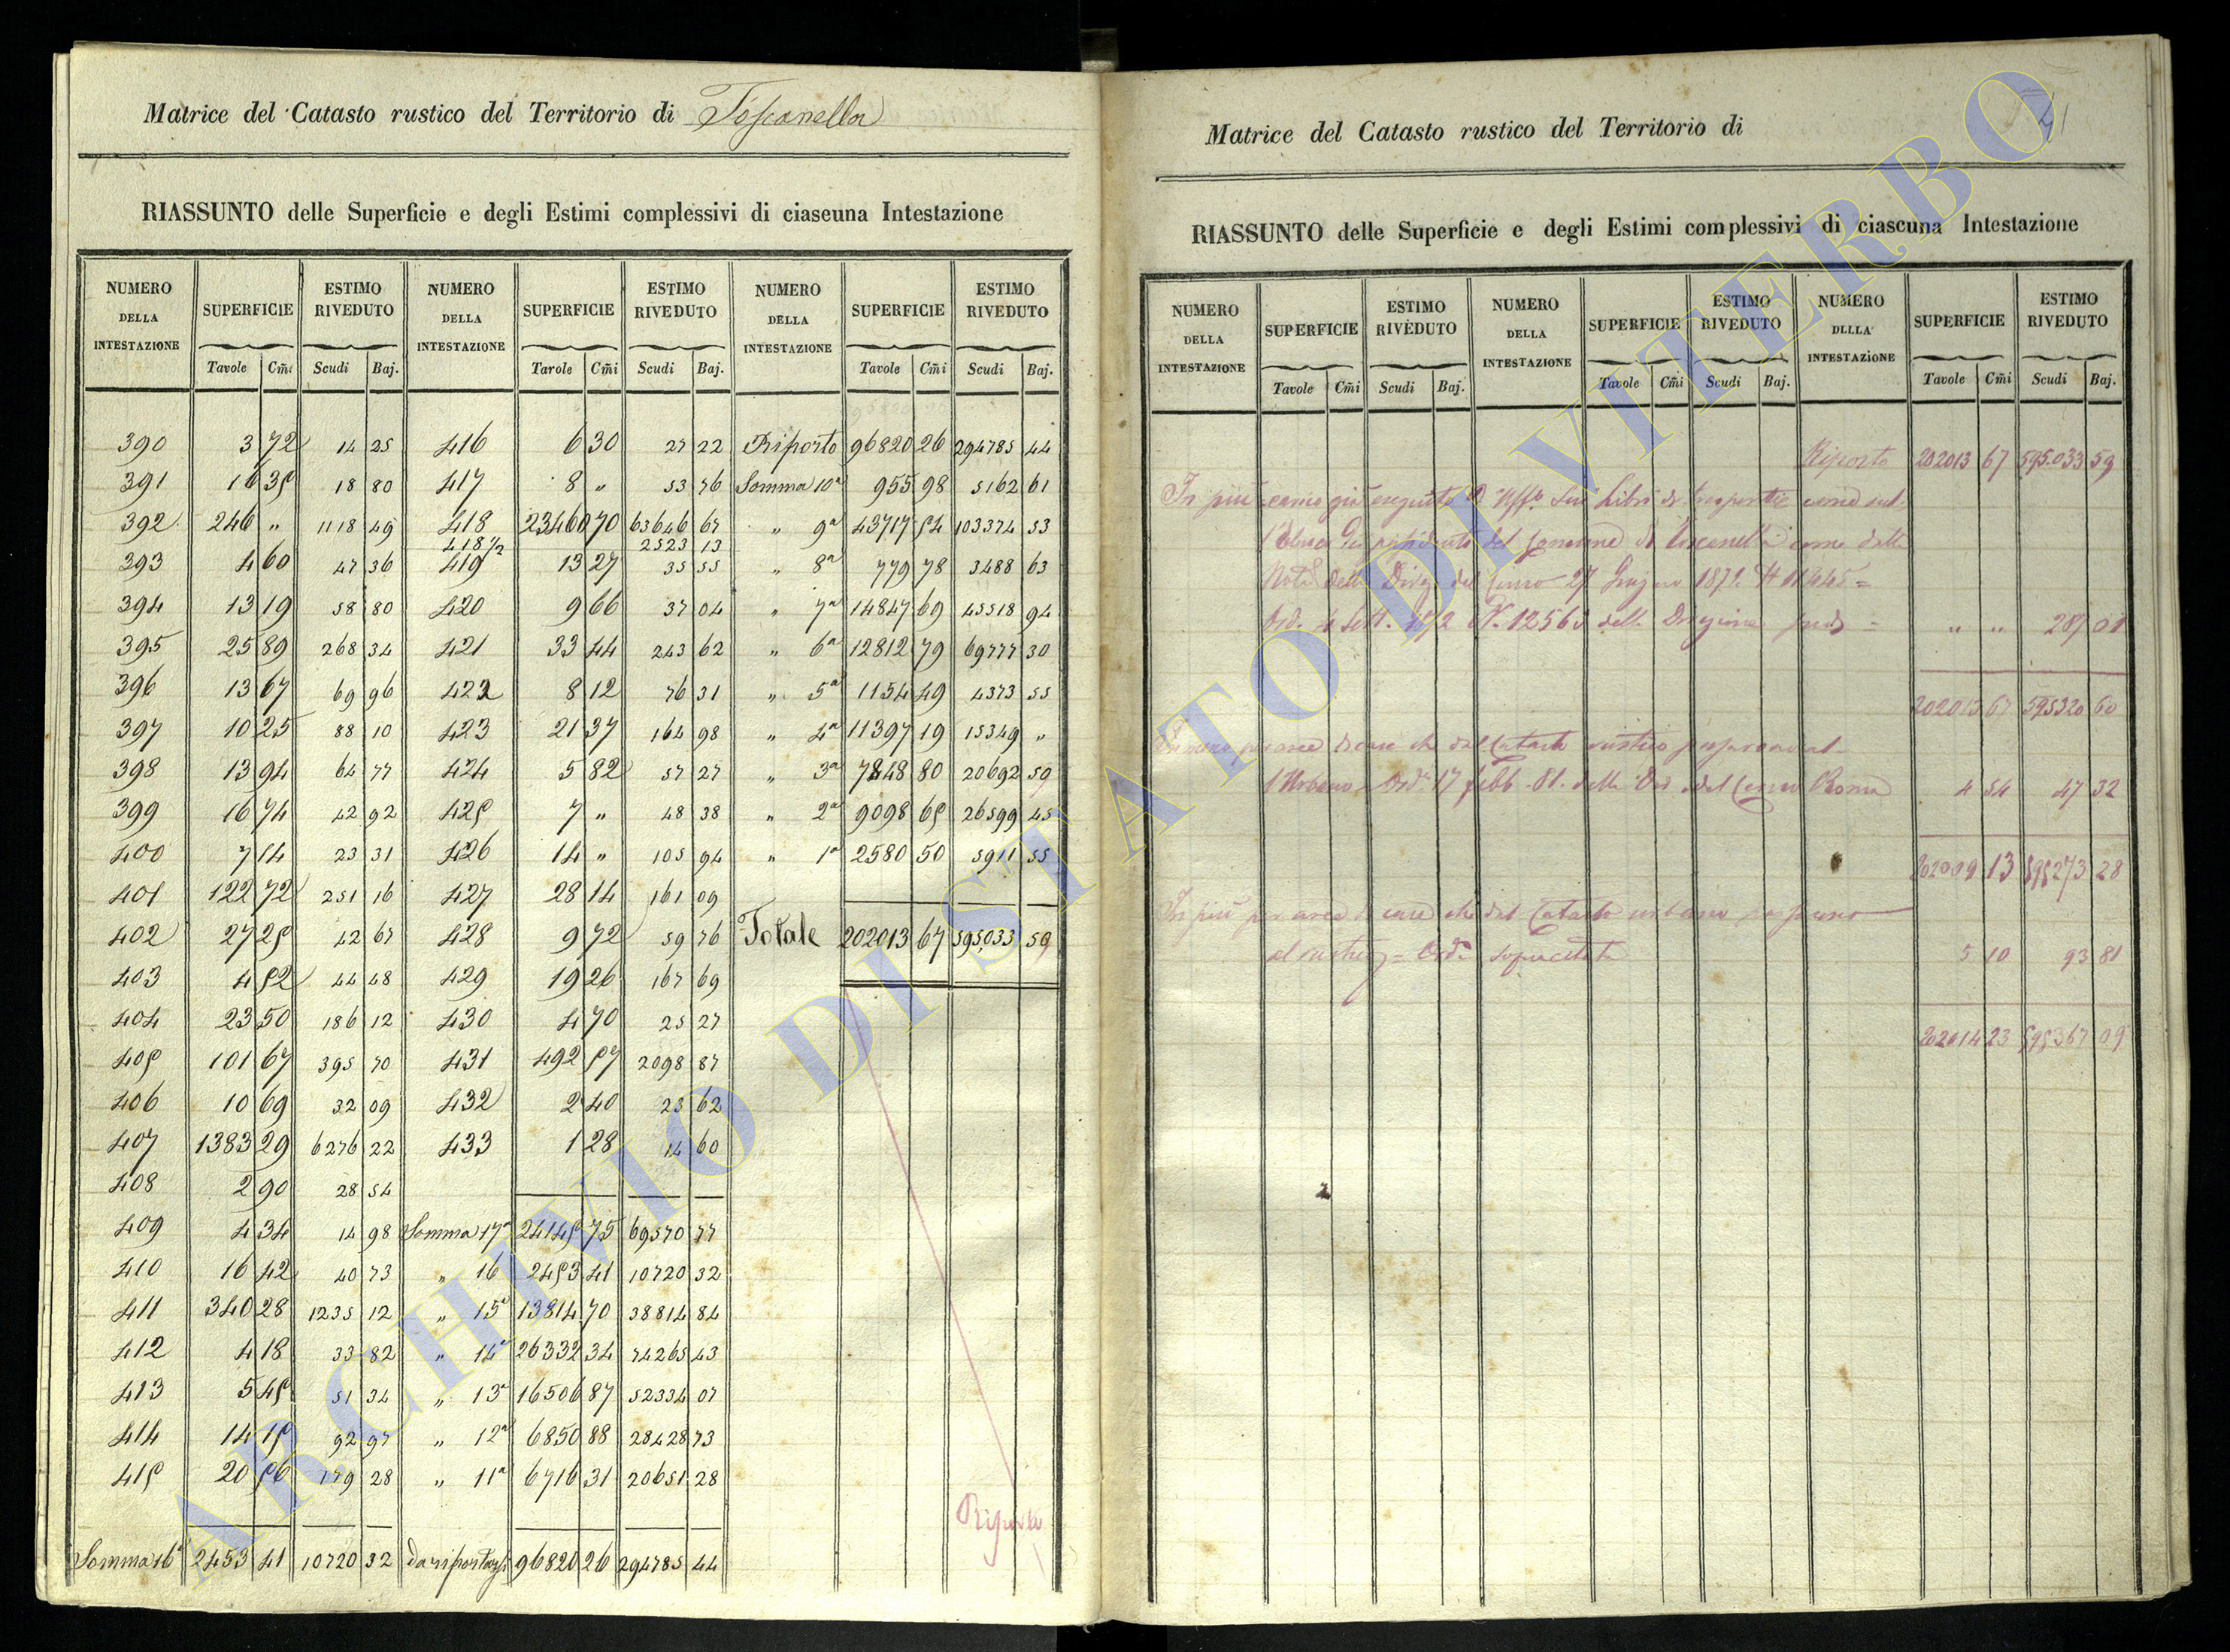 Matrice del Catasto rustico del Territorio di Toscanella
RIASSUNTO delle Superficie e degli Estimi complessivi di ciascuna Intestazione
NUMERO DELLA INTESTAZIONE SUPERFICIE ESTIMO RIVEDUTO NUMERO DELLA INTESTAZIONE SUPERFICIE ESTIMO RIVEDUTO NUMERO DELLA INTESTAZIONE SUPERFICIE ESTIMO RIVEDUTO
Tavole Cm̃i Scudi Baj. Tavole Cm̃i Scudi Baj. Tavole Cm̃i Scudi Baj.
390 3 72 14 25 416 6 30 27 22 Riporto 96820 26 294785 44
391 16 35 18 80 417 8 „ 53 76 Somma 10ª 955 98 5162 61
392 246 „ 1118 49 418 23460 70 63646 67 „ 9ª 43717 54 103374 53
418½ 2523 13
393 4 60 47 36 419 13 27 35 55 „ 8ª 779 78 3488 63
394 13 19 58 80 420 9 66 37 04 „ 7ª 14847 69 45518 94
395 25 89 268 34 421 33 44 243 62 „ 6ª 12812 79 69777 30
396 13 67 69 96 422 8 12 76 31 „ 5ª 1154 49 4373 55
397 10 25 88 10 423 21 37 164 98 „ 4ª 11397 19 15349 „
398 13 94 64 77 424 5 82 57 27 „ 3ª 7848 80 20692 59
399 16 74 42 92 425 7 „ 48 38 „ 2ª 9098 65 26599 45
400 7 14 23 31 426 14 „ 105 94 „ 1ª 2580 50 5911 55
401 122 72 251 16 427 28 14 161 09
402 27 25 42 67 428 9 72 59 76 Totale 202013 67 595033 59
403 4 52 44 48 429 19 26 167 69
404 23 50 186 12 430 4 70 25 27
405 101 67 395 70 431 492 57 2098 87
406 10 69 32 09 432 2 40 23 62
407 1383 29 6276 22 433 1 28 14 60
408 2 90 28 54
409 4 34 14 98 Somma 17ª 24145 75 69570 77
410 16 42 40 73 „ 16 2453 41 10720 32
411 340 28 1235 12 „ 15ª 13814 70 38814 84
412 4 18 33 82 „ 14ª 26332 34 74265 43
413 5 45 51 34 „ 13ª 16506 87 52334 07
414 14 15 92 97 „ 12ª 6850 88 28428 73
415 20 56 179 28 „ 11ª 6716 31 20651 28
Riporto
Somma 16ª 2453 41 10720 32 da riportarsi 96820 26 294785 44
41
Matrice del Catasto rustico del Territorio di
RIASSUNTO delle Superficie e degli Estimi complessivi di ciascuna Intestazione
NUMERO DELLA INTESTAZIONE SUPERFICIE ESTIMO RIVEDUTO NUMERO DELLA INTESTAZIONE SUPERFICIE ESTIMO RIVEDUTO NUMERO DLLLA INTESTAZIONE SUPERFICIE ESTIMO RIVEDUTO
Tavole Cm̃i Scudi Baj. Tavole Cm̃i Scudi Baj. Tavole Cm̃i Scudi Baj.
Riporto 202013 67 595.033 59
In più come già eseguito sui Libri di trasporti come
del Comune di Toscanella come dalla
Nota della Direz. del Censo 27 Giugno 1872
Ord. 4 Sett. 1872 N. 12563 della Direzione „ „ 287 01
202013 67 595320 60
In meno per aree di case che dal Catasto rustico passano al
l'Urbano Ord. 17 febb. 81. della Dir. del Censo Roma 4 54 47 32
202009 13 595273 28
In più per aree di case che dal Catasto urbano passano
al rustico = Ord. sopracitata 5 10 93 81
202014 23 595367 09
ARCHIVIO DI STATO DI VITERBO